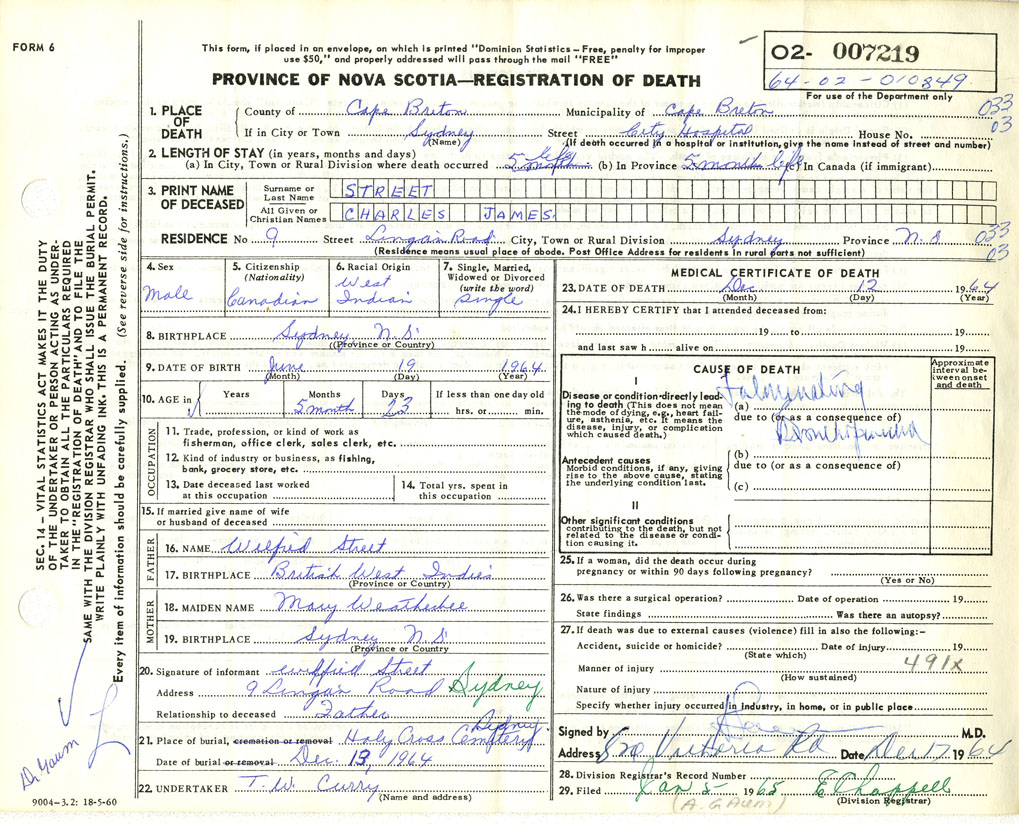 FORM 6
This form, if placed in an envelope, on which is printed "Dominion Statistics – Free, penalty for improper
use $50," and properly addressed will pass through the mail "FREE"
PROVINCE OF NOVA SCOTIA—REGISTRATION OF DEATH
02- 007219
64-02-010849
For use of the Department only
033
03
1. PLACE OF DEATH
County of Cape Breton Municipality of Cape Breton
If in City or Town Sydney Street City Hospital House No.
(Name) (If death occurred in a hospital or institution, give the name instead of street and number)
2. LENGTH OF STAY (in years, months and days)
(a) In City, Town or Rural Division where death occurred 5 month life (b) In Province 5 month life (c) In Canada (if immigrant)
3. PRINT NAME OF DECEASED
Surname or Last Name STREET
All Given or Christian Names CHARLES JAMES
RESIDENCE No 9 Street Lingan Road City, Town or Rural Division Sydney Province N.S
033
03
(Residence means usual place of abode. Post Office Address for residents in rural parts not sufficient)
4. Sex
Male
5. Citizenship
(Nationality)
Canadian
6. Racial Origin
West
Indian
7. Single, Married,
Widowed or Divorced
(write the word)
Single
8. BIRTHPLACE Sydney N.S.
(Province or Country)
9. DATE OF BIRTH June 19 1964
(Month) (Day) (Year)
10. AGE in
Years Months Days If less than one day old
5 month 23 hrs. or min.
OCCUPATION
11. Trade, profession, or kind of work as
fisherman, office clerk, sales clerk, etc.
12. Kind of industry or business, as fishing,
bank, grocery store, etc.
13. Date deceased last worked
at this occupation
14. Total yrs. spent in
this occupation
15. If married give name of wife
or husband of deceased
FATHER
16. NAME Wilfied Street
17. BIRTHPLACE British West Indies
(Province or Country)
MOTHER
18. MAIDEN NAME Mary Weatherbee
19. BIRTHPLACE Sydney N.S
(Province or Country)
20. Signature of informant Wilfied Street
Address 9 Lingan Road Sydney
Relationship to deceased Father
21. Place of burial, cremation or removal Holy Cross Cemetery Sydney
Date of burial or removal Dec. 13, 1964
22. UNDERTAKER T. W. Curry
(Name and address)
MEDICAL CERTIFICATE OF DEATH
23. DATE OF DEATH Dec 12 1964
(Month) (Day) (Year)
24. I HEREBY CERTIFY that I attended deceased from:
19 to 19
and last saw h alive on 19
CAUSE OF DEATH
Approximate
interval be-
tween onset
and death
I
Disease or condition directly lead-
ing to death (This does not mean
the mode of dying, e.g., heart fail-
ure, asthenia, etc. It means the
disease, injury, or complication
which caused death.)
(a) Fulminating
due to (or as a consequence of)
Bronchopneumonia
Antecedent causes
Morbid conditions, if any, giving
rise to the above cause, stating
the underlying condition last.
(b)
due to (or as a consequence of)
(c)
II
Other significant conditions
contributing to the death, but not
related to the disease or condi-
tion causing it.
25. If a woman, did the death occur during
pregnancy or within 90 days following pregnancy?
(Yes or No)
26. Was there a surgical operation? Date of operation 19
State findings Was there an autopsy?
27. If death was due to external causes (violence) fill in also the following:–
Accident, suicide or homicide? Date of injury 19
(State which)
491x
Manner of injury
(How sustained)
Nature of injury
Specify whether injury occurred in industry, in home, or in public place
Signed by M.D.
Address Victoria Rd Date Dec 17 1964
28. Division Registrar's Record Number
29. Filed Jan 5 1965 E Chappell
(A. G Aum) (Division Registrar)
SEC. 14 – VITAL STATISTICS ACT MAKES IT THE DUTY
OF THE UNDERTAKER OR PERSON ACTING AS UNDER-
TAKER TO OBTAIN ALL THE PARTICULARS REQUIRED
IN THE "REGISTRATION OF DEATH" AND TO FILE THE
SAME WITH THE DIVISION REGISTRAR WHO SHALL ISSUE THE BURIAL PERMIT.
WRITE PLAINLY WITH UNFADING INK. THIS IS A PERMANENT RECORD.
Every item of information should be carefully supplied. (See reverse side for instructions.)
Dr Gaum
9004-3.2: 18-5-60